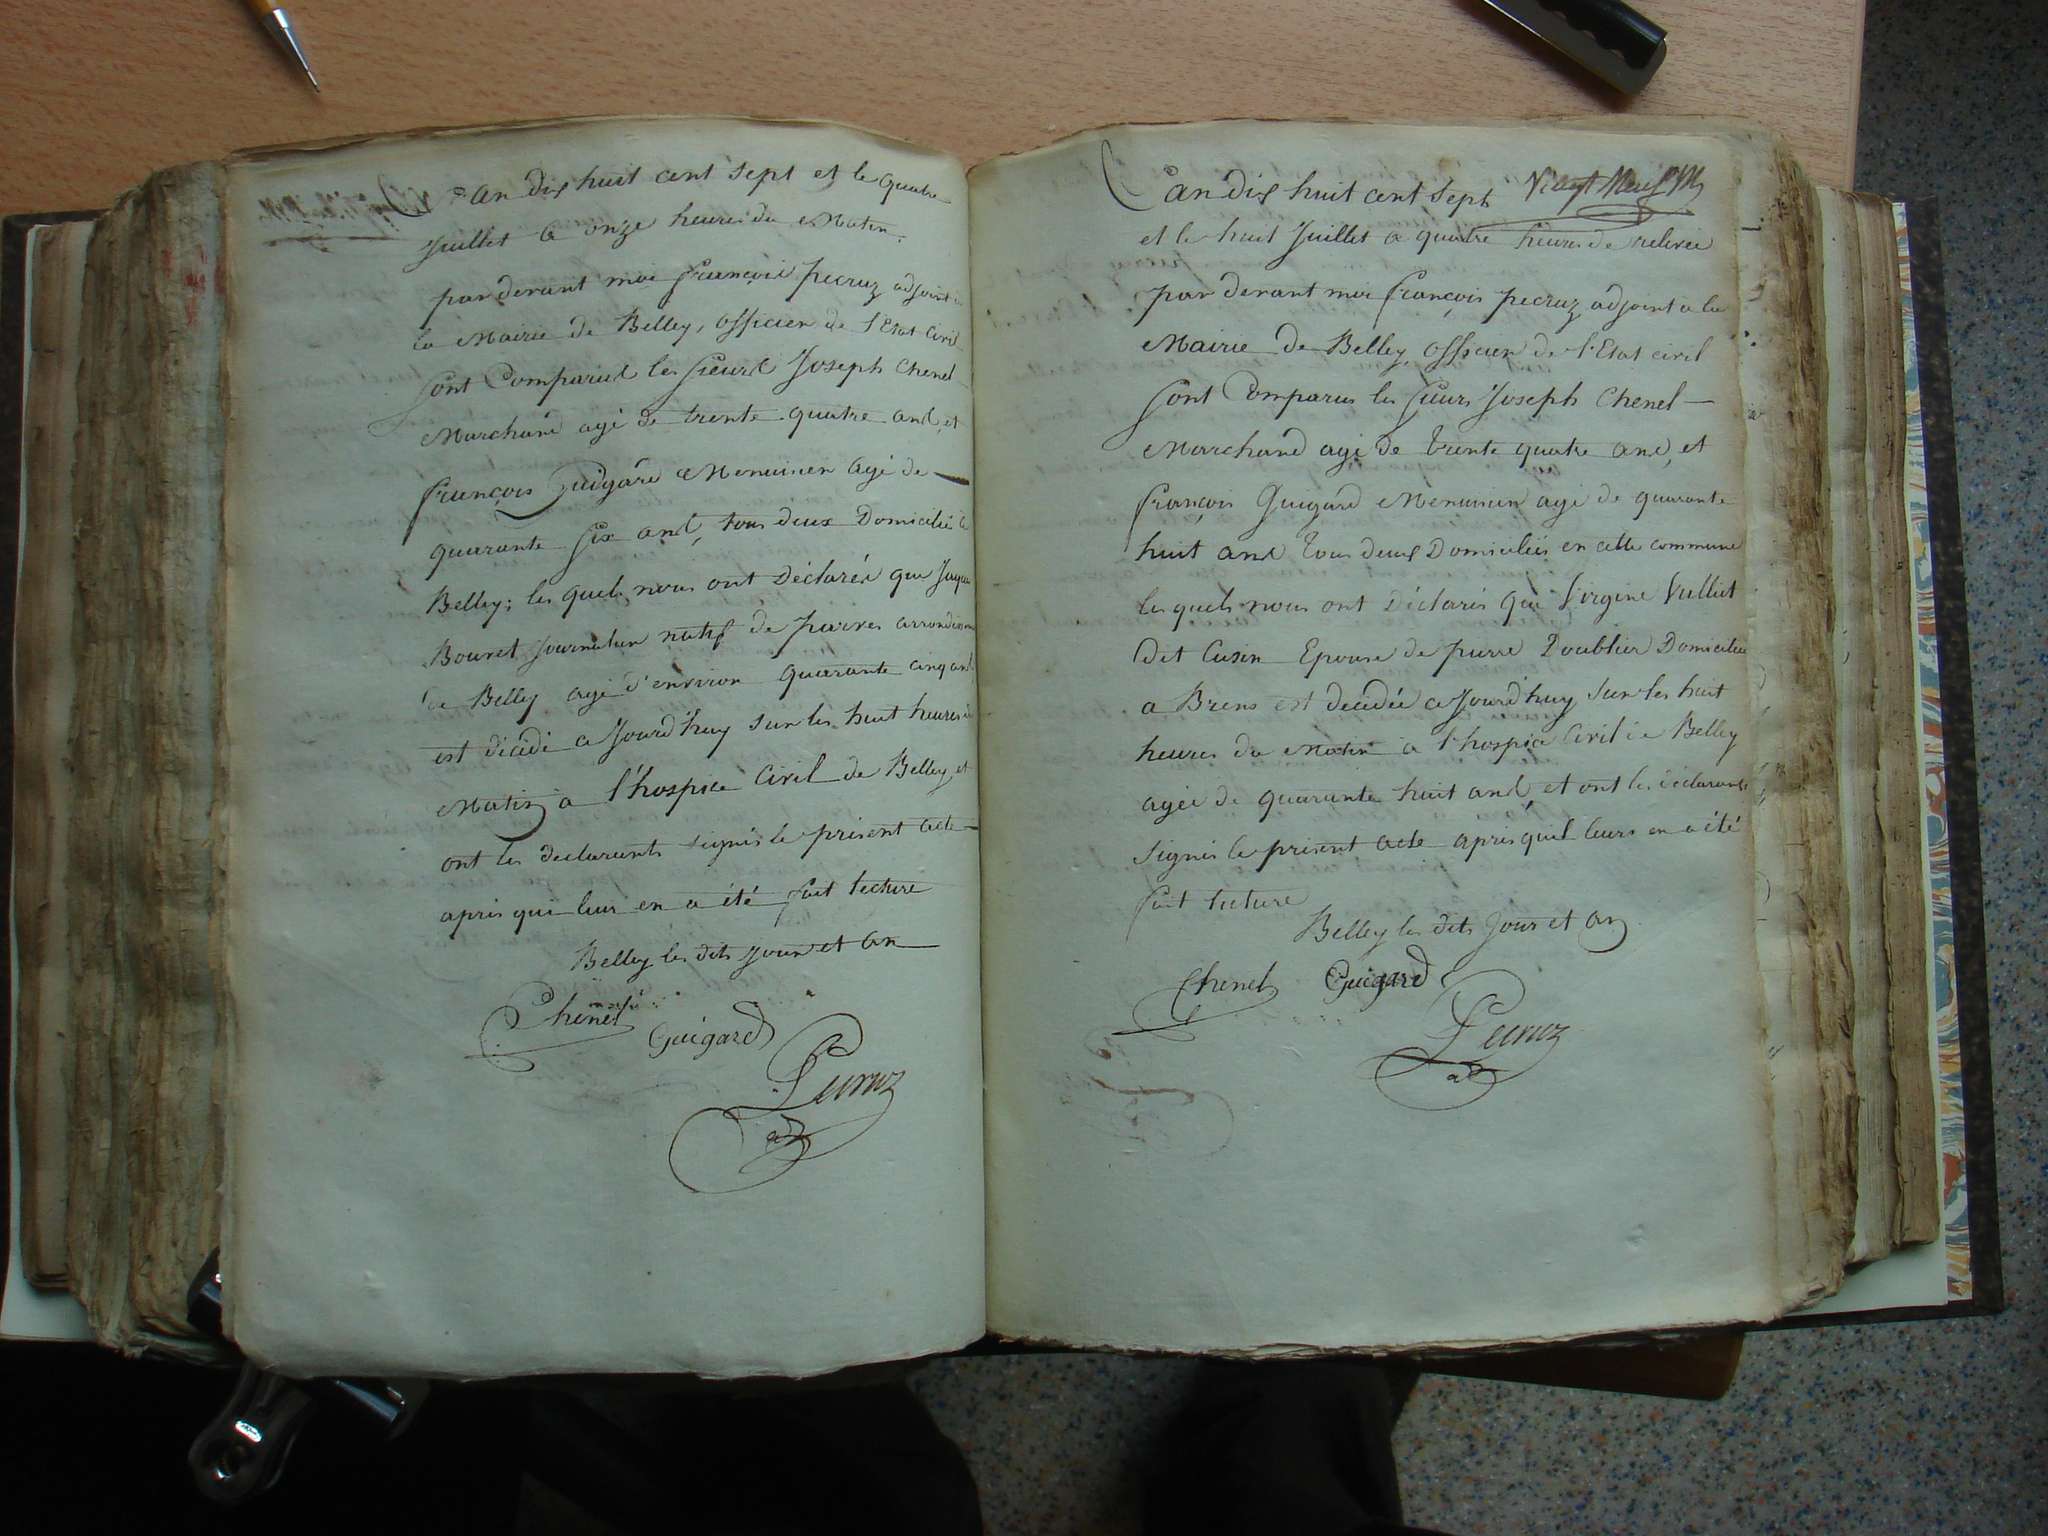 L'an dix huit cent sept et le quatre
Juillet a onze heures du Matin.
par devant moi françois pecruz adjoint a
la Mairie de Belley, officier de l'Etat Civil
sont Comparus les sieurs Joseph Chenel
Marchand agé de trente quatre ans, et
françois Guigard Menuisier agé de
quarante six ans, tous deux Domiciliés a
Belley; les quels nous ont Déclarés que Jaques
Bouvet journalier natif de parves arrondissem
de Belley agé d'environ quarante cinq ans
est décédé ajourd'huy sur les huit heures du
Matin a l'hospice Civil de Belley, et
ont les declarants signés le présent acte
apres que leur en a été fait lecture
Belley les dits jour et an
Chenel
Guigard
Pecruz
adj
Vingt Neuf
L'an dix huit cent sept
et le huit Juillet a quatre heures de relevée
par devant moi françois pecruz adjoint a la
Mairie de Belley, officier de l'Etat civil
sont Comparus les sieurs Joseph Chenel
Marchand agé de trente quatre ans, et
françois Guigard Menuisier agé de quarante
huit ans tous deux Domiciliés en cette commune
les quels nous ont Déclarés que Virgine Vulliet
dit Cusin Epouse de pierre Doublier Domiciliée
a Brens est decédée ajourd'huy sur les huit
heures du Matin a l'hospice Civil de Belley
agée de quarante huit ans, et ont les déclarants
signés le présent acte apres quil leurs en a été
fait lecture
Belley les dits jour et an
Chenel Guigard
Pecruz
ad